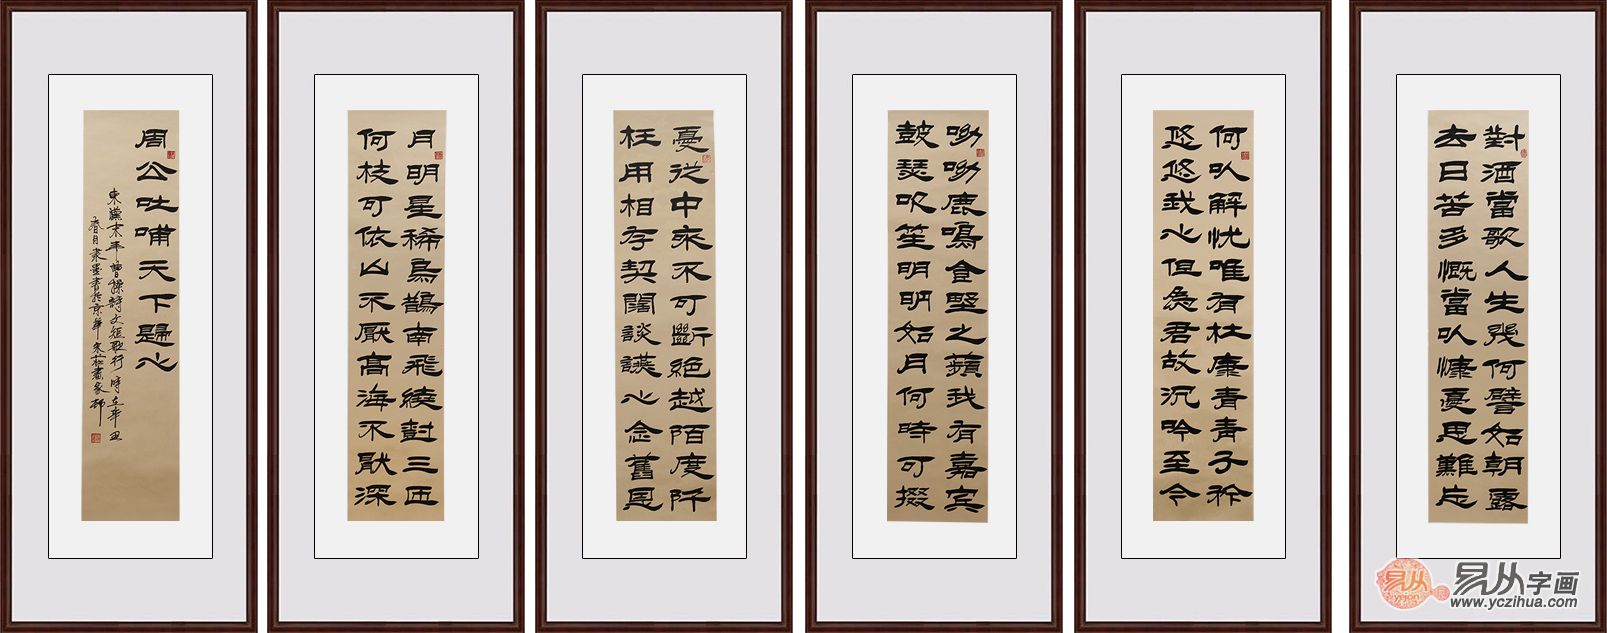 對酒當歌人生幾何譬如朝露
去日苦多慨當以慷憂思難忘
何以解忧唯有杜康青青子衿
悠悠我心但為君故沉吟至今
呦呦鹿鳴食野之蘋我有嘉賓
鼓瑟吹笙明明如月何時可掇
憂從中來不可斷絕越陌度阡
枉用相存契闊談讌心念舊恩
月明星稀烏鵲南飛繞樹三匝
何枝可依山不厭高海不厭深
周公吐哺天下歸心
東漢末年曹操詩文短歌行 時在辛丑
春月袁墨書於京華宋莊畫家邨
易从
yejon
易从字画
www.yczihua.com